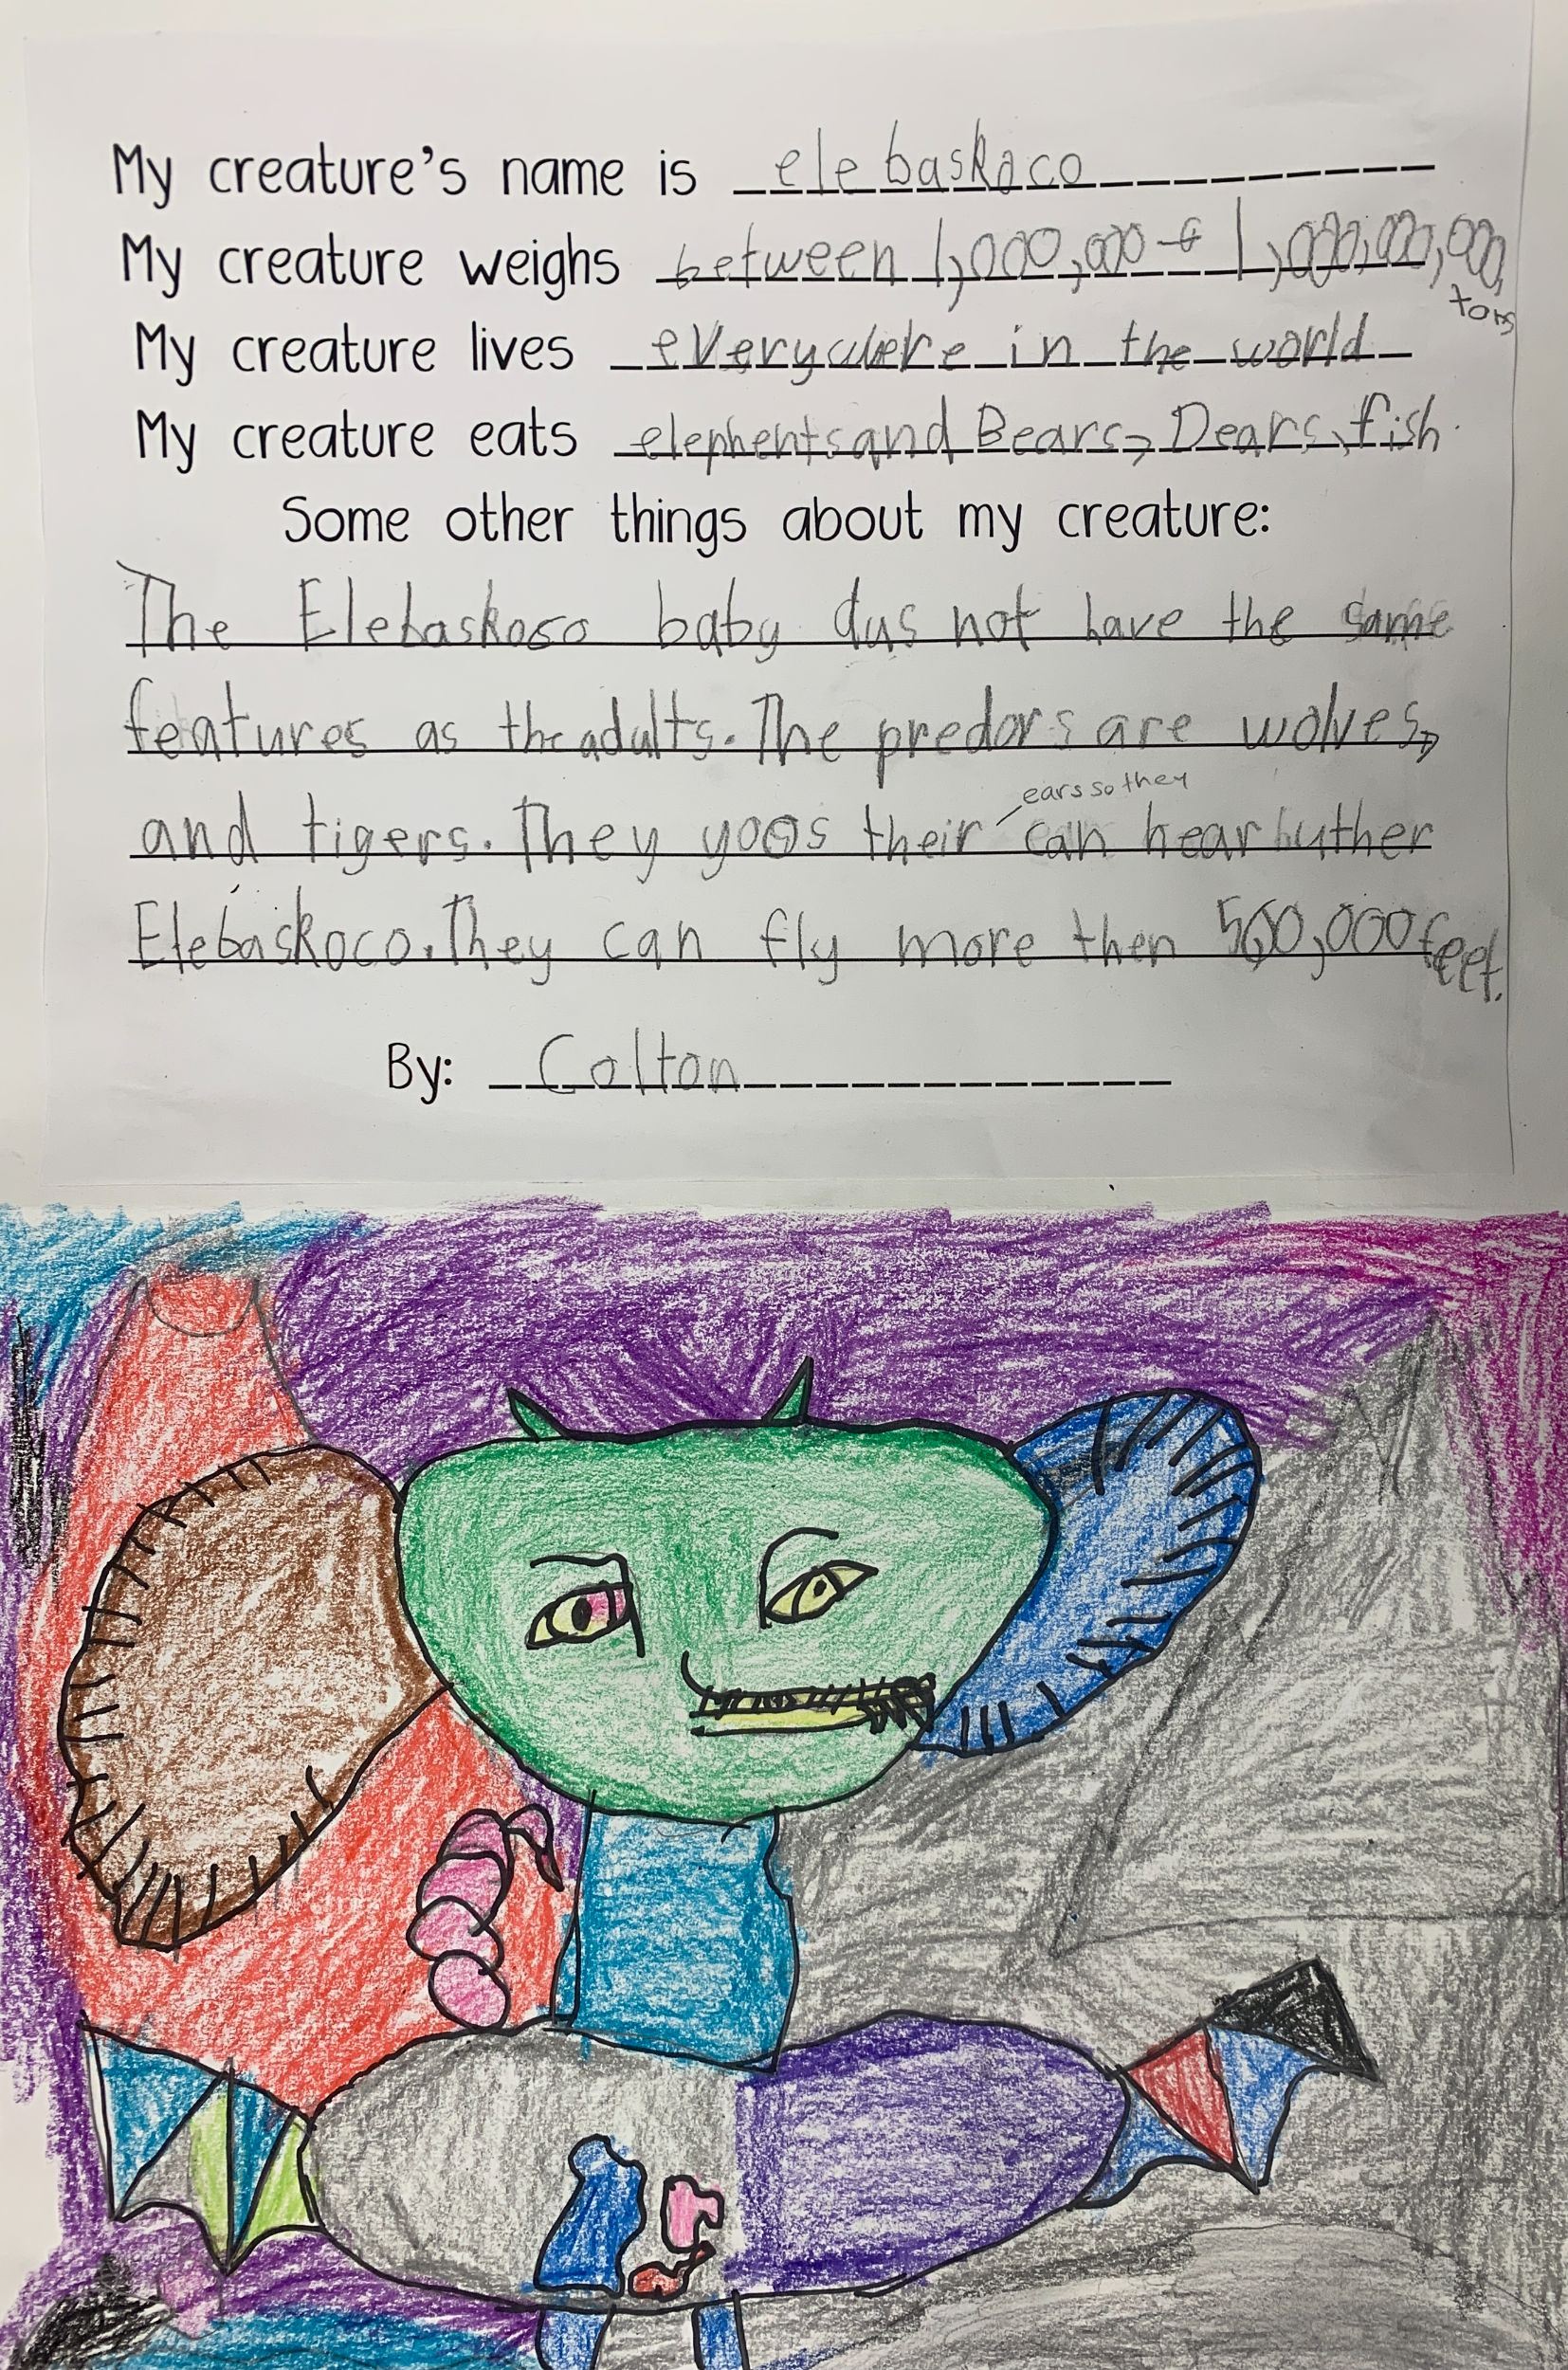 My creature's name is elebaskoco
My creature weighs between 1,000,000 - 1,000,000,000,
tons
My creature lives everywhere in the world
My creature eats elephents and Bears, Dears, fish.
Some other things about my creature:
The Elebaskoso baby dus not have the same
features as the adults. The predors are wolves,
ears so they
and tigers. They yoos their can hear uther
Elebaskoco. They can fly more then 500,000 feet.
By: Colton